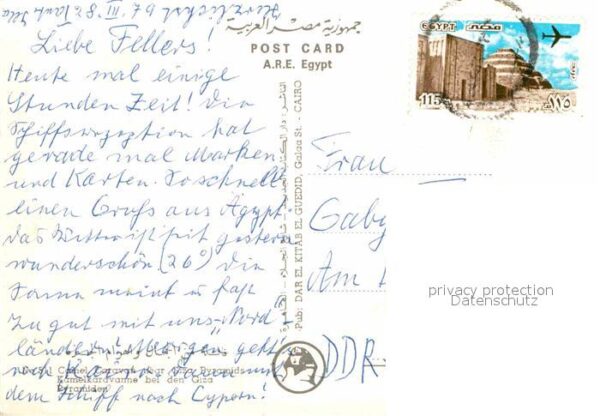 Liebe Fellers!
Heute mal einige
Stunden Zeit! Die
Schiffsrezeption hat
gerade mal Marken
und Karten. So schnell
einen Gruß aus Ägypt.
Das Wetter ist seit gestern
wunderschön (26°) Die
Sonne meint es fast
zu gut mit uns "Nord-
länder". Morgen geht's
nach Kairo. Dann mit
dem Schiff nach Cypern!
Herzlichst
جمهورية مصر العربية
POST CARD
A.R.E. Egypt
Pub: DAR EL KITAB EL GUEDID, Galaa St. - CAIRO
Camel Caravan near Giza Pyramids
Kamelkarawane bei den Giza
Pyramiden
EGYPT مصر
115 ١١٥
Frau
Gaby
Am
DDR
privacy protection
Datenschutz